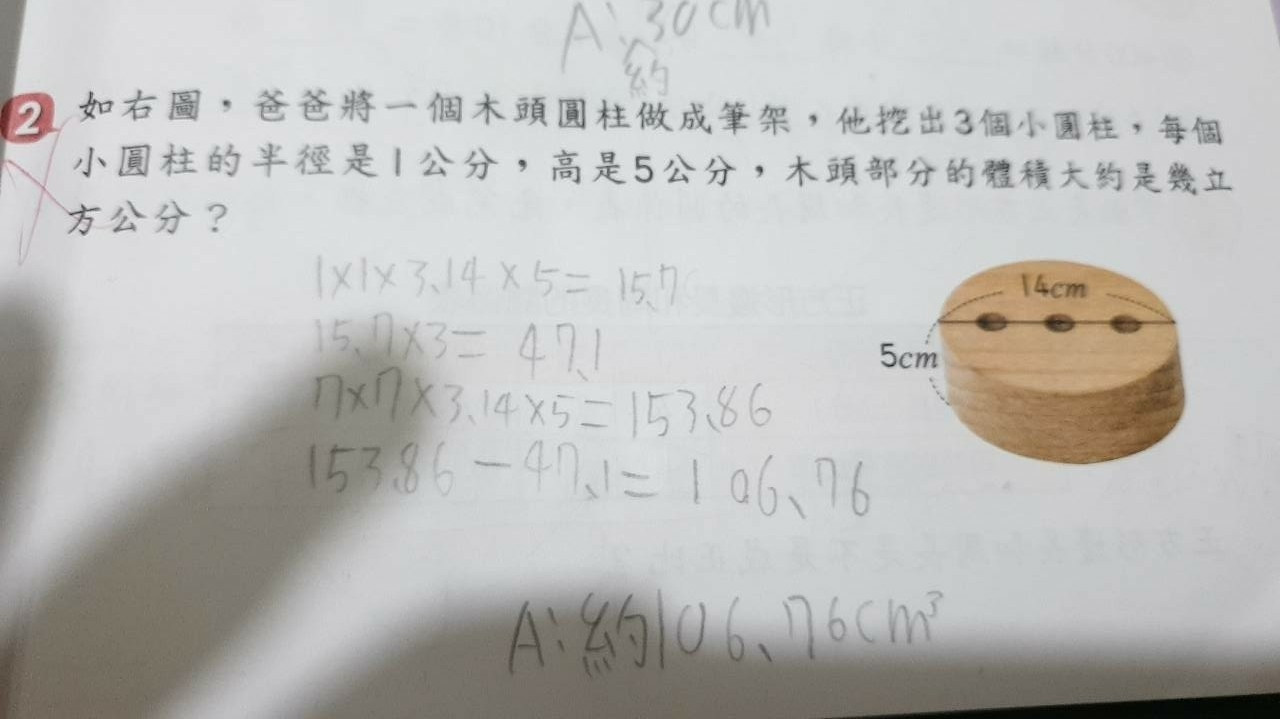 A:30cm
約
2 如右圖，爸爸將一個木頭圓柱做成筆架，他挖出3個小圓柱，每個
小圓柱的半徑是1公分，高是5公分，木頭部分的體積大約是幾立
方公分？
1×1×3.14×5=15.7
15.7×3=47.1
7×7×3.14×5=153.86
153.86-47.1=106.76
14cm
5cm
A:約106.76cm³